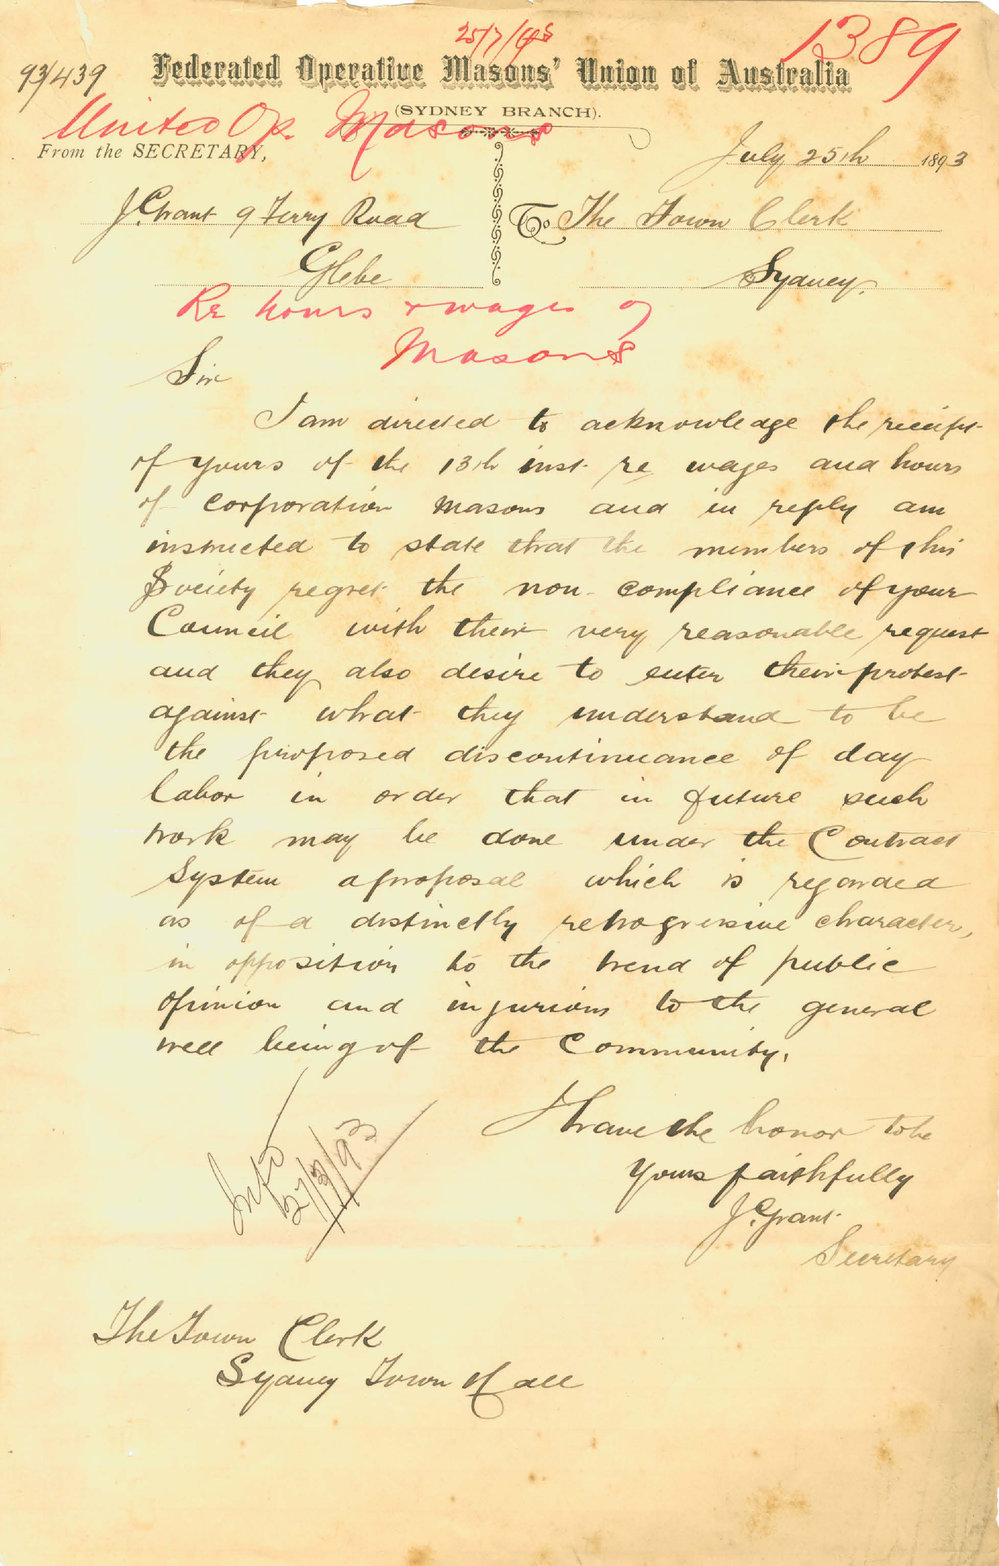 25/7/93
1389
93/439
Federated Operative Masons' Union of Australia
(SYDNEY BRANCH).
United Op. Masons
From the SECRETARY,
July 25th 1893
J. Grant 9 Ferry Road
To The Town Clerk
Glebe
Sydney.
Re hours & wages of
Masons
Sir
I am directed to acknowledge the receipt
of yours of the 13th inst. re wages and hours
of Corporation Masons and in reply am
instructed to state that the members of this
Society regret the non-compliance of your
Council with their very reasonable request
and they also desire to enter their protest
against what they understand to be
the proposed discontinuance of day
labor in order that in future such
work may be done under the Contract
System a proposal which is regarded
as of a distinctly retrogressive character,
in opposition to the trend of public
opinion and injurious to the general
well being of the Community.
I have the honor to be
Yours faithfully
J. Grant
Secretary
The Town Clerk
Sydney Town Hall